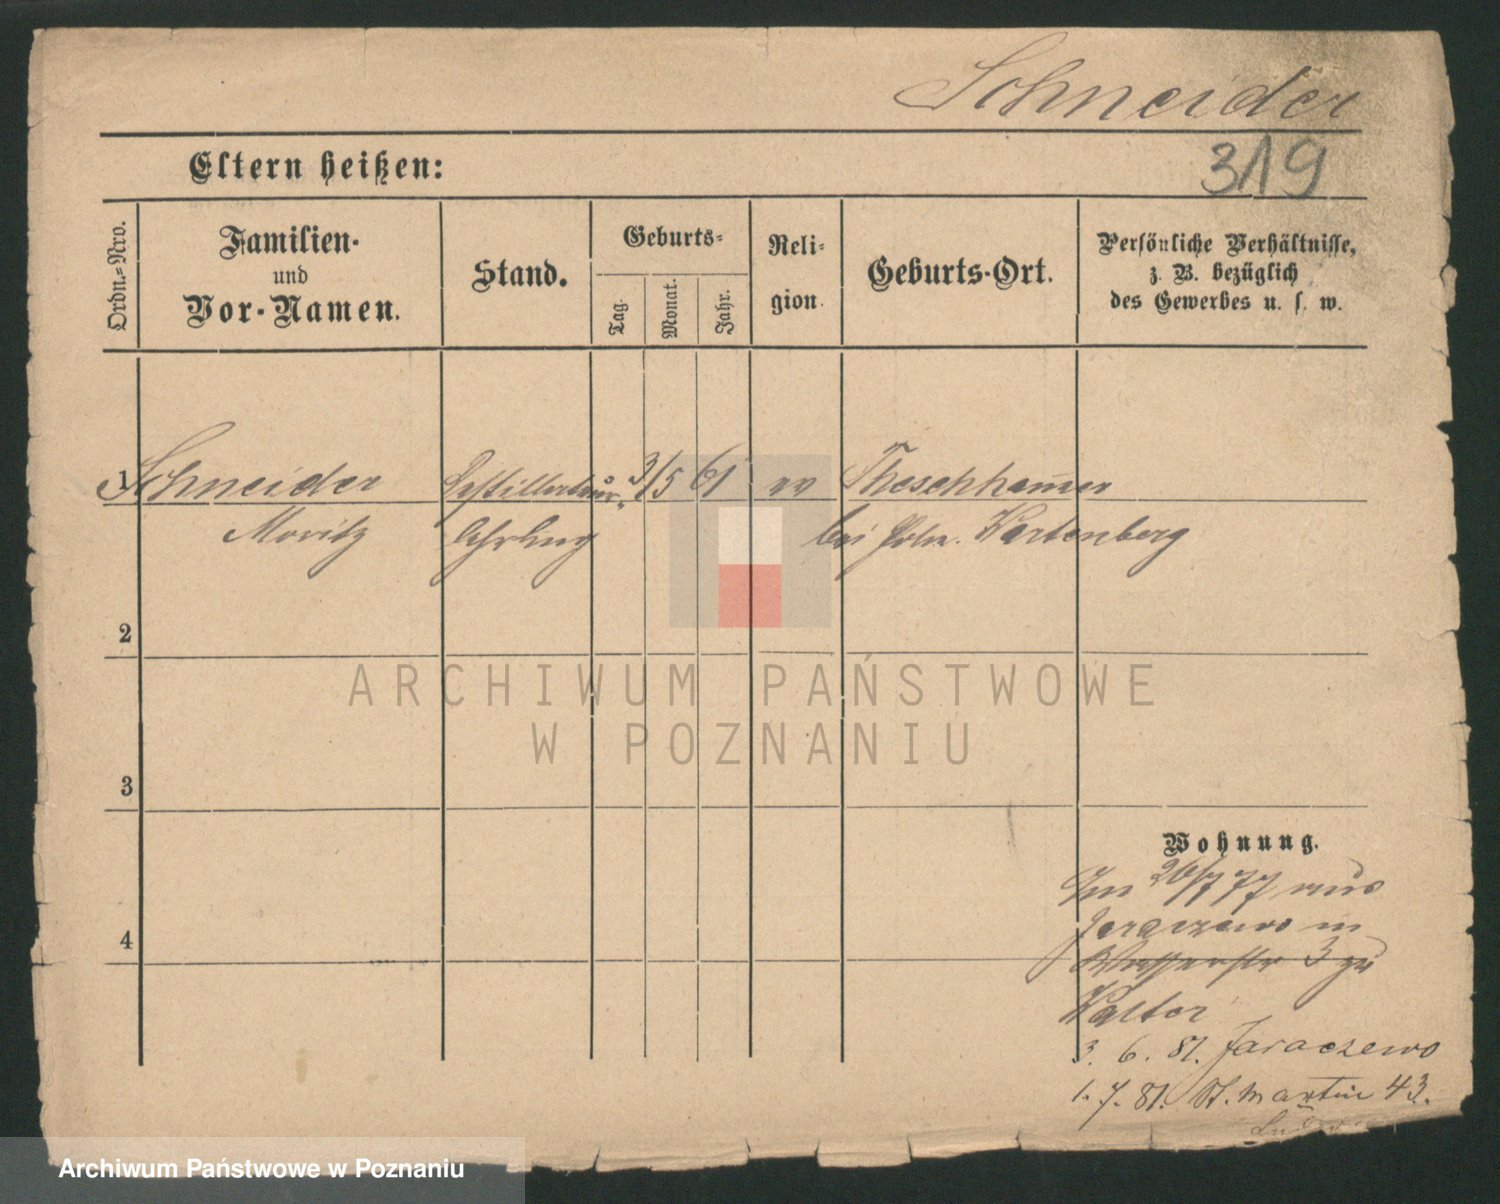 Schneider
Eltern heißen:
319
Ordn.-Nro.
Familien-
und
Vor-Namen.
Stand.
Geburts-
Tag.
Monat.
Jahr.
Reli-
gion.
Geburts-Ort.
Persönliche Verhältnisse,
z. B. bezüglich
des Gewerbes u. s. w.
1 Schneider Destillateur- 3/5 61 ev
Moritz lehrling bei Poln. Wartenberg
2
ARCHIWUM PAŃSTWOWE
W POZNANIU
3
Wohnung.
26/7 77 aus
Jaraczewo in
Wasserstr 3 zu
4
3. 6. 81. Jaraczewo
1. 7. 81. St. Martin 43.
Archiwum Państwowe w Poznaniu